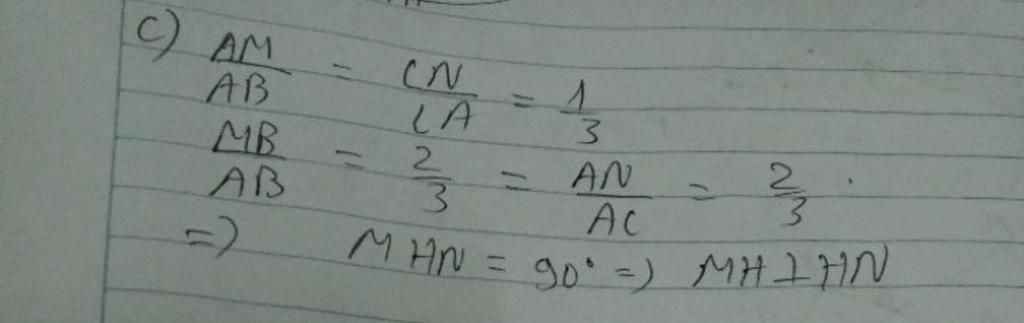 c) AM/AB = CN/CA = 1/3
MB/AB = 2/3 = AN/AC = 2/3 .
=) MHN = 90° =) MH⊥HN